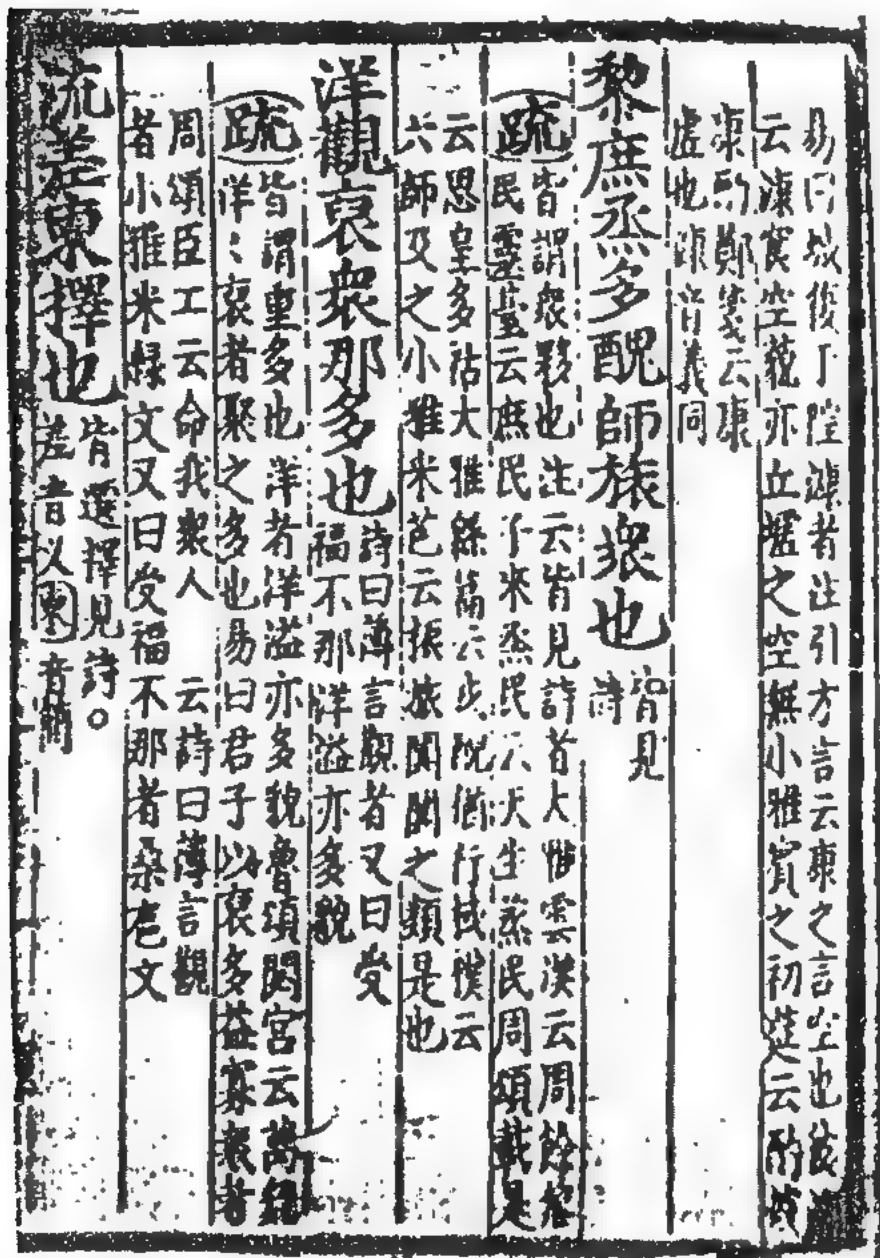 易曰城復于隍漮者注引方言云康之言空也
云漮㝩空貌亦丘墟之空無小雅賓之初筵云酌彼
康爵鄭箋云康
虛也漮音義同
黎庶烝多醜師旅衆也
皆見
詩
疏
皆謂衆夥也注云皆見詩者大雅雲漢云周餘黎
民靈臺云庶民子來烝民云天生烝民周頌載見
云思皇多祜大雅緜篇云戎醜攸行棫樸云
六師及之小雅采芑云振旅闐闐之類是也
洋觀裒衆那多也
詩曰薄言觀者又曰受
福不那洋溢亦多貌
疏
皆謂重多也洋者洋溢亦多貌魯頌閟宮云萬
洋〻裒者聚之多也易曰君子以裒多益寡衆者
周頌臣工云命我衆人 云詩曰薄言觀
者小雅采綠文又曰受福不那者桑扈文
流差柬擇也
皆選擇見詩○
差音以柬音簡